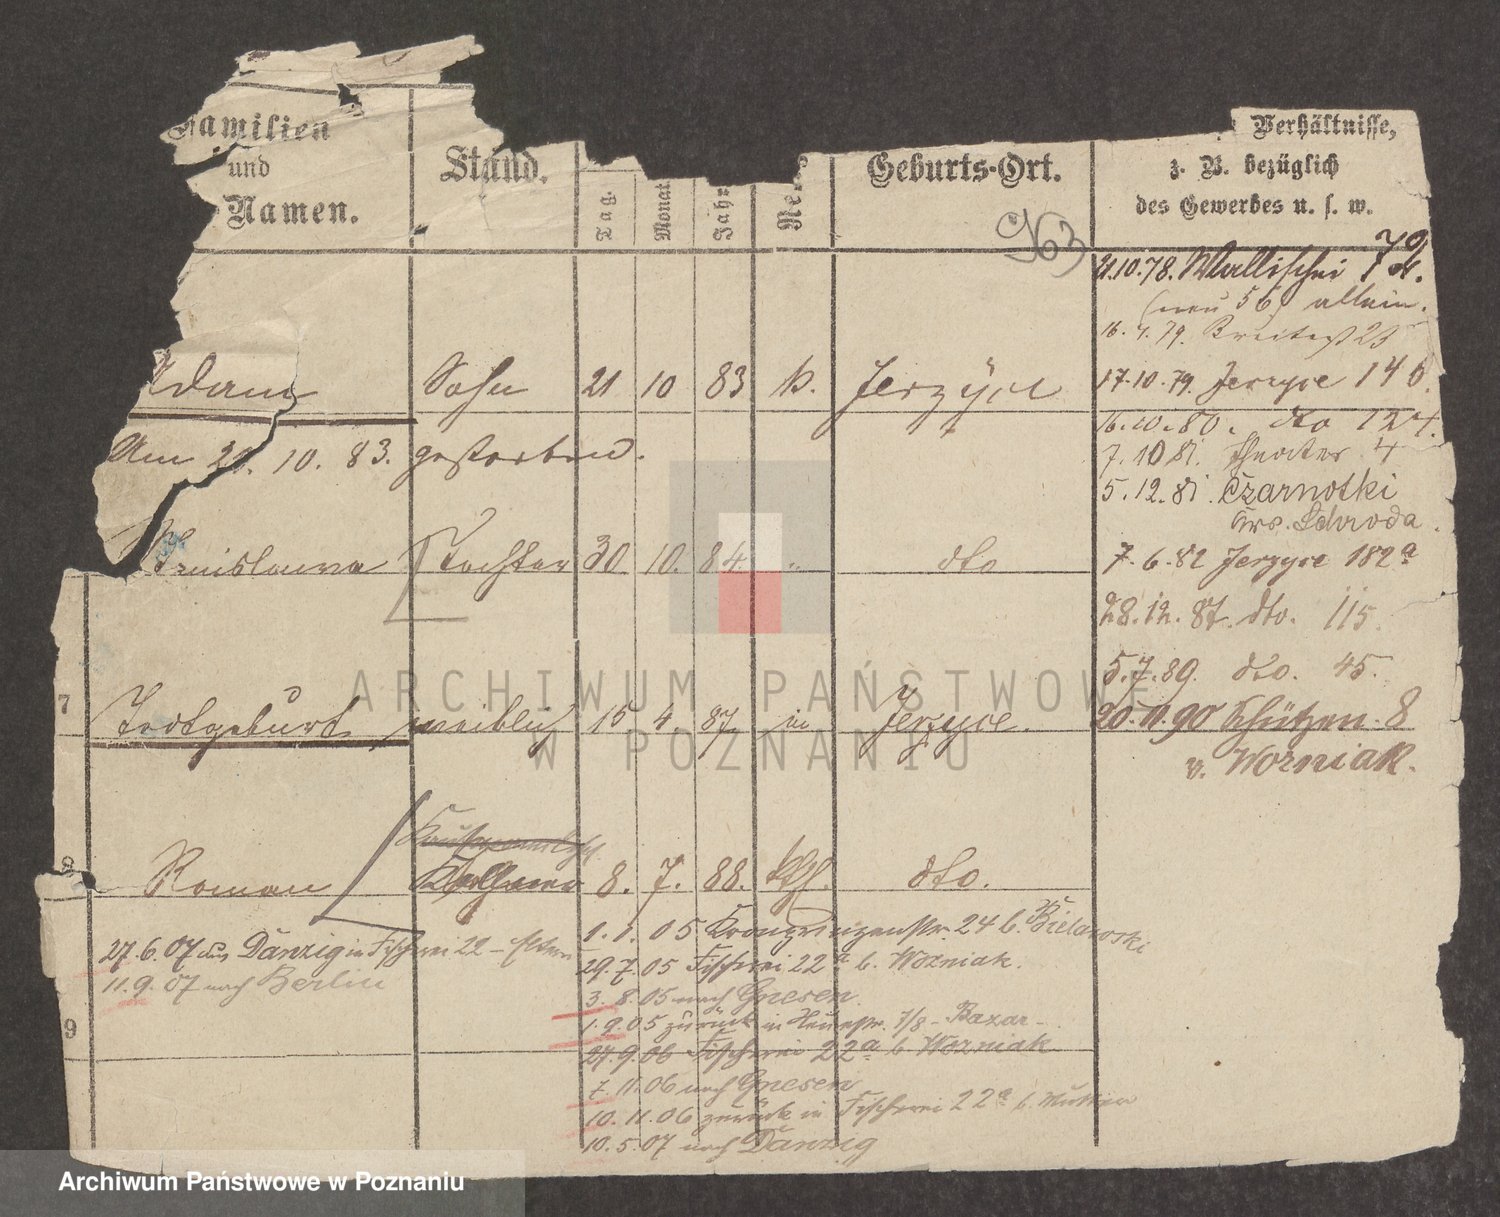 Familien
und
Namen.
Stand.
Tag.
Monat
Jahr
Geburts-Ort.
Verhältnisse,
z. B. bezüglich
des Gewerbes u. s. w.
963
79
21.10.78. Wallischei
(neu 56) allein.
16. 4. 79. Breitest 23
Adam Sohn 21 10 83 k. Jerzyce
17.10.79. Jerzyce 146.
16.10.80. dto 124.
Am 21. 10. 83. gestorben.
7.10.81. Theater 4
5.12.81. Czarnotki
Krs. Schroda.
Stanislawa Tochter 30 10. 84. " dto
7.6.82 Jerzyce 182a
28.12.87. dto. 115.
5.7.89. dto. 45.
7 Todtgeburt weiblich 15 4. 87 in Jerzyce.
20.11.90 Schützen 8
v. Wozniak.
8 Roman Kellner 8. 7. 88. kth. dto.
1.1.05 Kronprinzenstr. 24 b. Bielawski
27.6.07 aus Danzig in Fischerei 22 - Eltern
29.7.05 Fischerei 22a b. Wozniak.
11.9.07 nach Berlin
3.8.05 nach Gnesen.
1.9.05 zurück in Neuestr. 7/8 - Bazar -
9
27.9.06 Fischerei 22a b Wozniak
7.11.06 nach Gnesen
10.11.06 zurück in Fischerei 22a b. Mutter
10.5.07 nach Danzig
ARCHIWUM PAŃSTWOWE
W POZNANIU
Archiwum Państwowe w Poznaniu